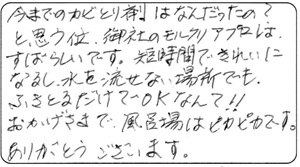 今までのカビとり剤はなんだったの？
と思う位、御社のモルタリアプローは、
すばらしいです。短時間できれいに
なるし、水を流せない場所でも、
ふきとるだけでOKなんて!!
おかげさまで、風呂場はピカピカです。
ありがとうございます。